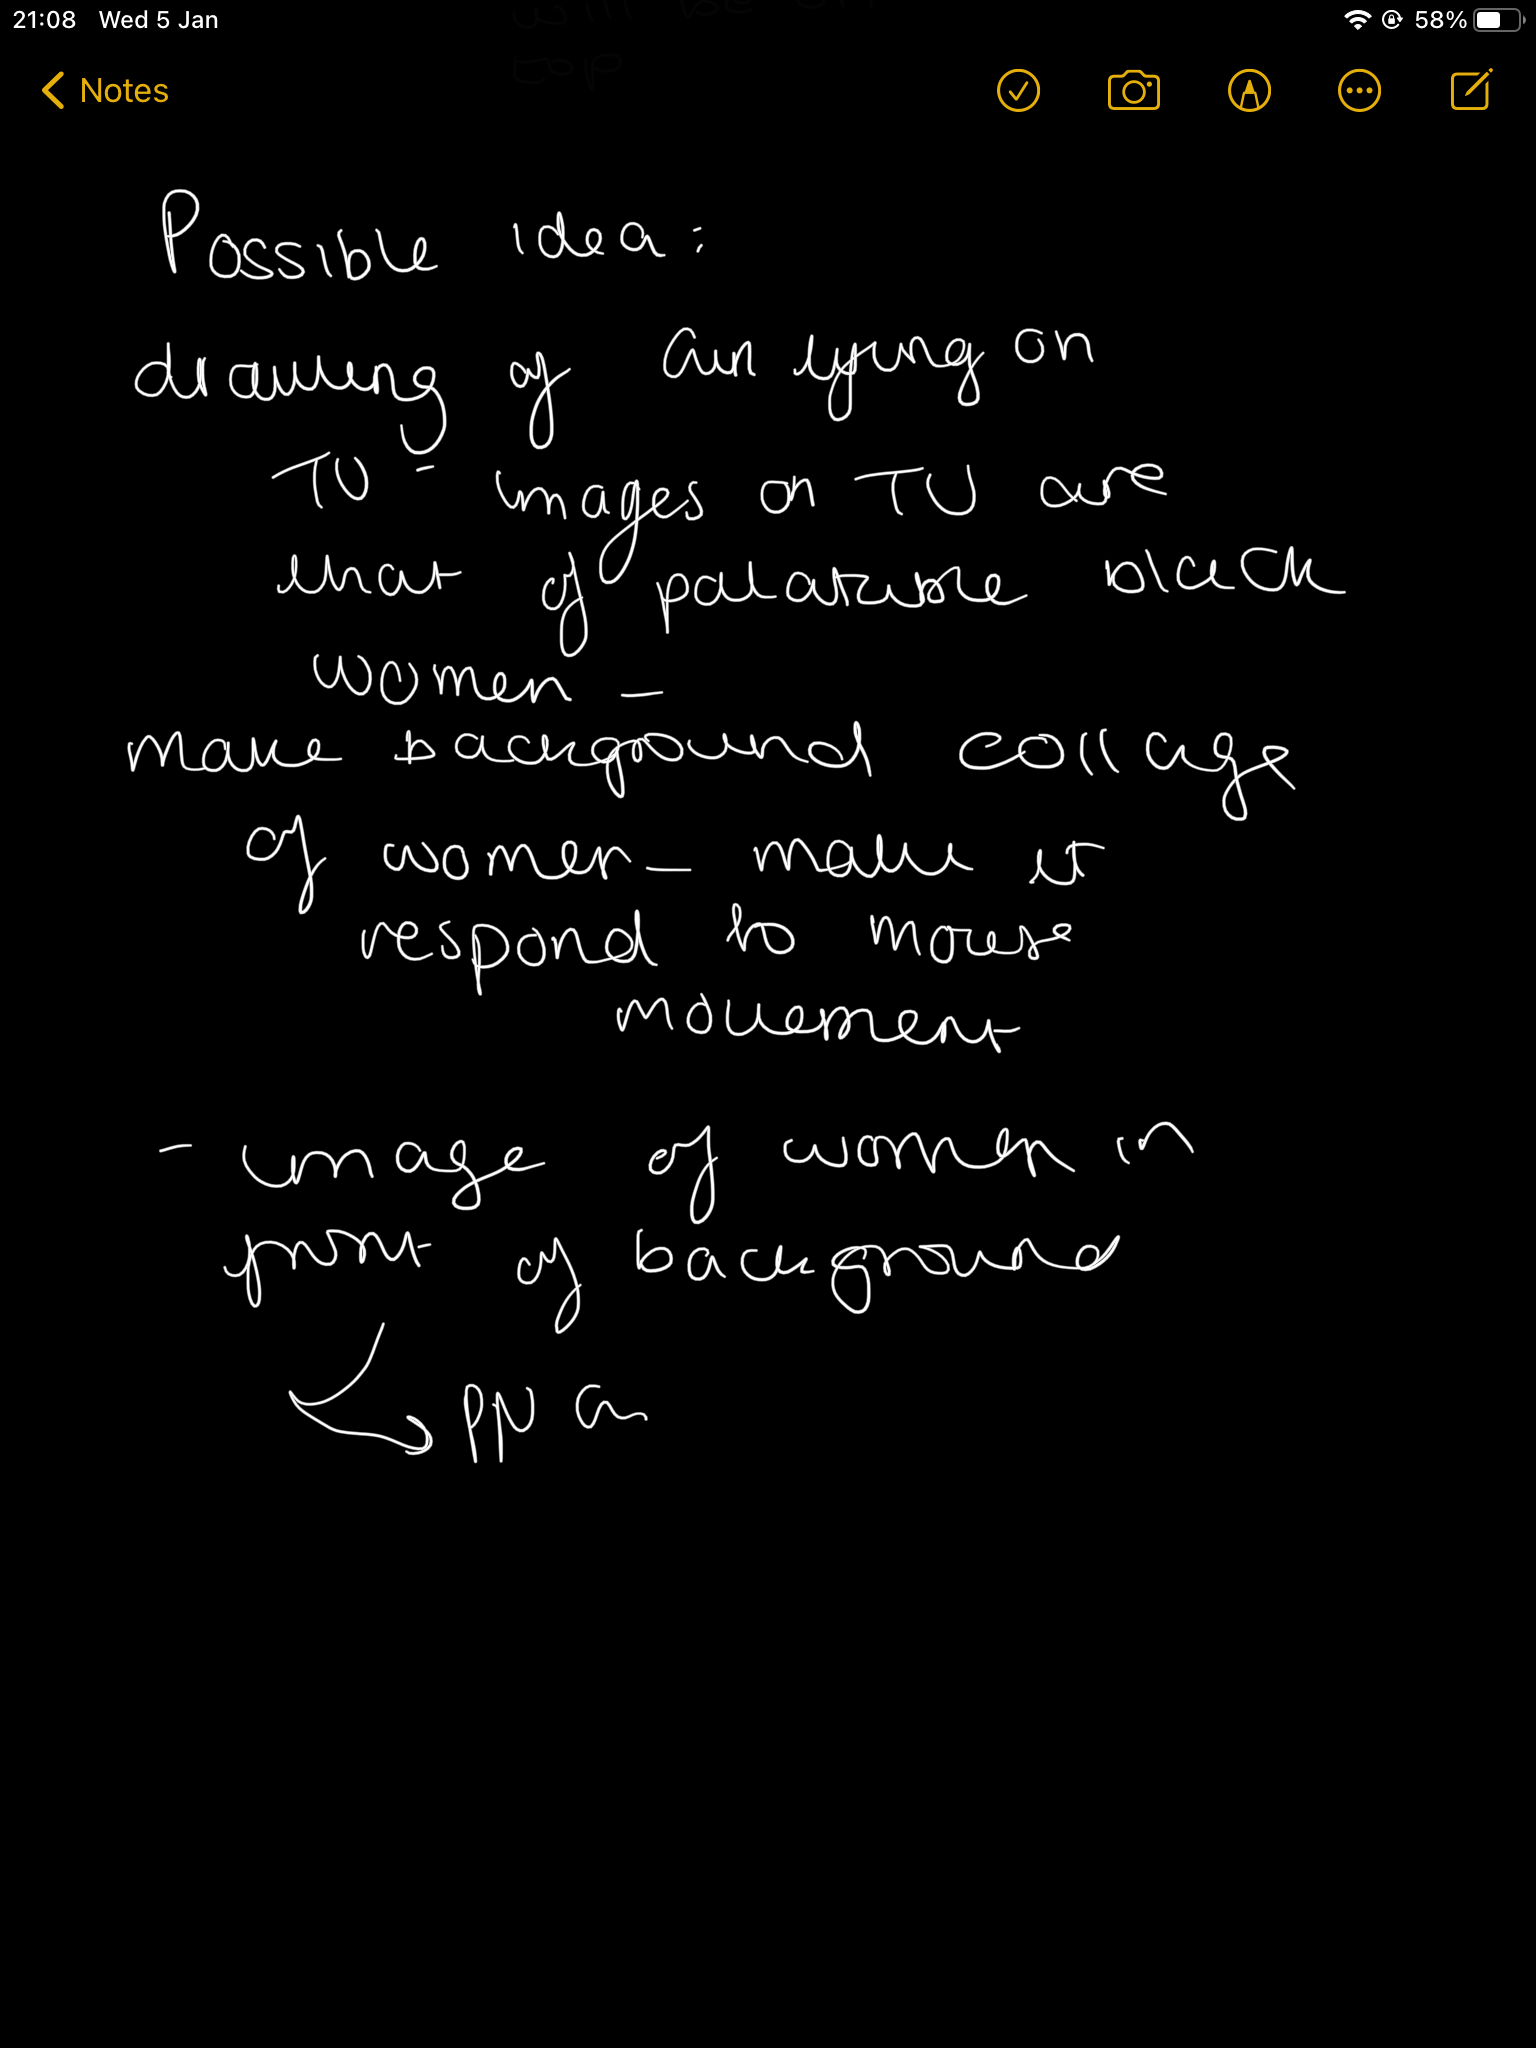 21:08 Wed 5 Jan 58%
Notes
Possible idea:
drawing of girl lying on
TV - images on TV are
that of palatable black
women -
make background collage
of women - make it
respond to mouse
movement
- image of women in
front of background